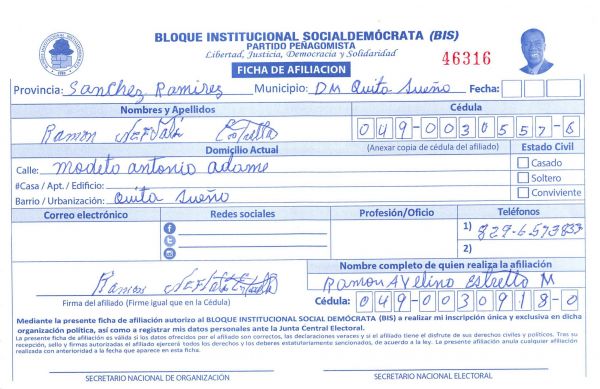 BLOQUE INSTITUCIONAL SOCIALDEMÓCRATA (BIS)
PARTIDO PEÑAGOMISTA
Libertad, Justicia, Democracia y Solidaridad
46316
FICHA DE AFILIACION
Provincia: Sanchez Ramirez Municipio: DM Quita Sueño Fecha:
Nombres y Apellidos Cédula
Ramon Neftali Estrella 049-0030557-6
Domicilio Actual (Anexar copia de cédula del afiliado) Estado Civil
Calle: Modeto antonio adame Casado
#Casa / Apt. / Edificio: Soltero
Barrio / Urbanización: Quita Sueño Conviviente
Correo electrónico Redes sociales Profesión/Oficio Teléfonos
1) 829-6573833
2)
Nombre completo de quien realiza la afiliación
Ramon Neftali Estrella Ramon Avelino M
Firma del afiliado (Firme igual que en la Cédula) Cédula: 049-0030918-0
Mediante la presente ficha de afiliación autorizo al BLOQUE INSTITUCIONAL SOCIAL DEMÓCRATA (BIS) a realizar mi inscripción única y exclusiva en dicha
organización política, así como a registrar mis datos personales ante la Junta Central Electoral.
La presente ficha de afiliación es válida si los datos ofrecidos por el afiliado son correctos, las declaraciones veraces y si el afiliado tiene el disfrute de sus derechos civiles y políticos. Tras su
recepción, sello y firmas autorizadas el afiliado ejercerá todos los derechos y los deberes estatutariamente sancionados, de acuerdo a la ley. La presente afiliación anula cualquier afiliación
realizada con anterioridad a la fecha que aparece en esta ficha.
SECRETARIO NACIONAL DE ORGANIZACIÓN SECRETARIO NACIONAL ELECTORAL